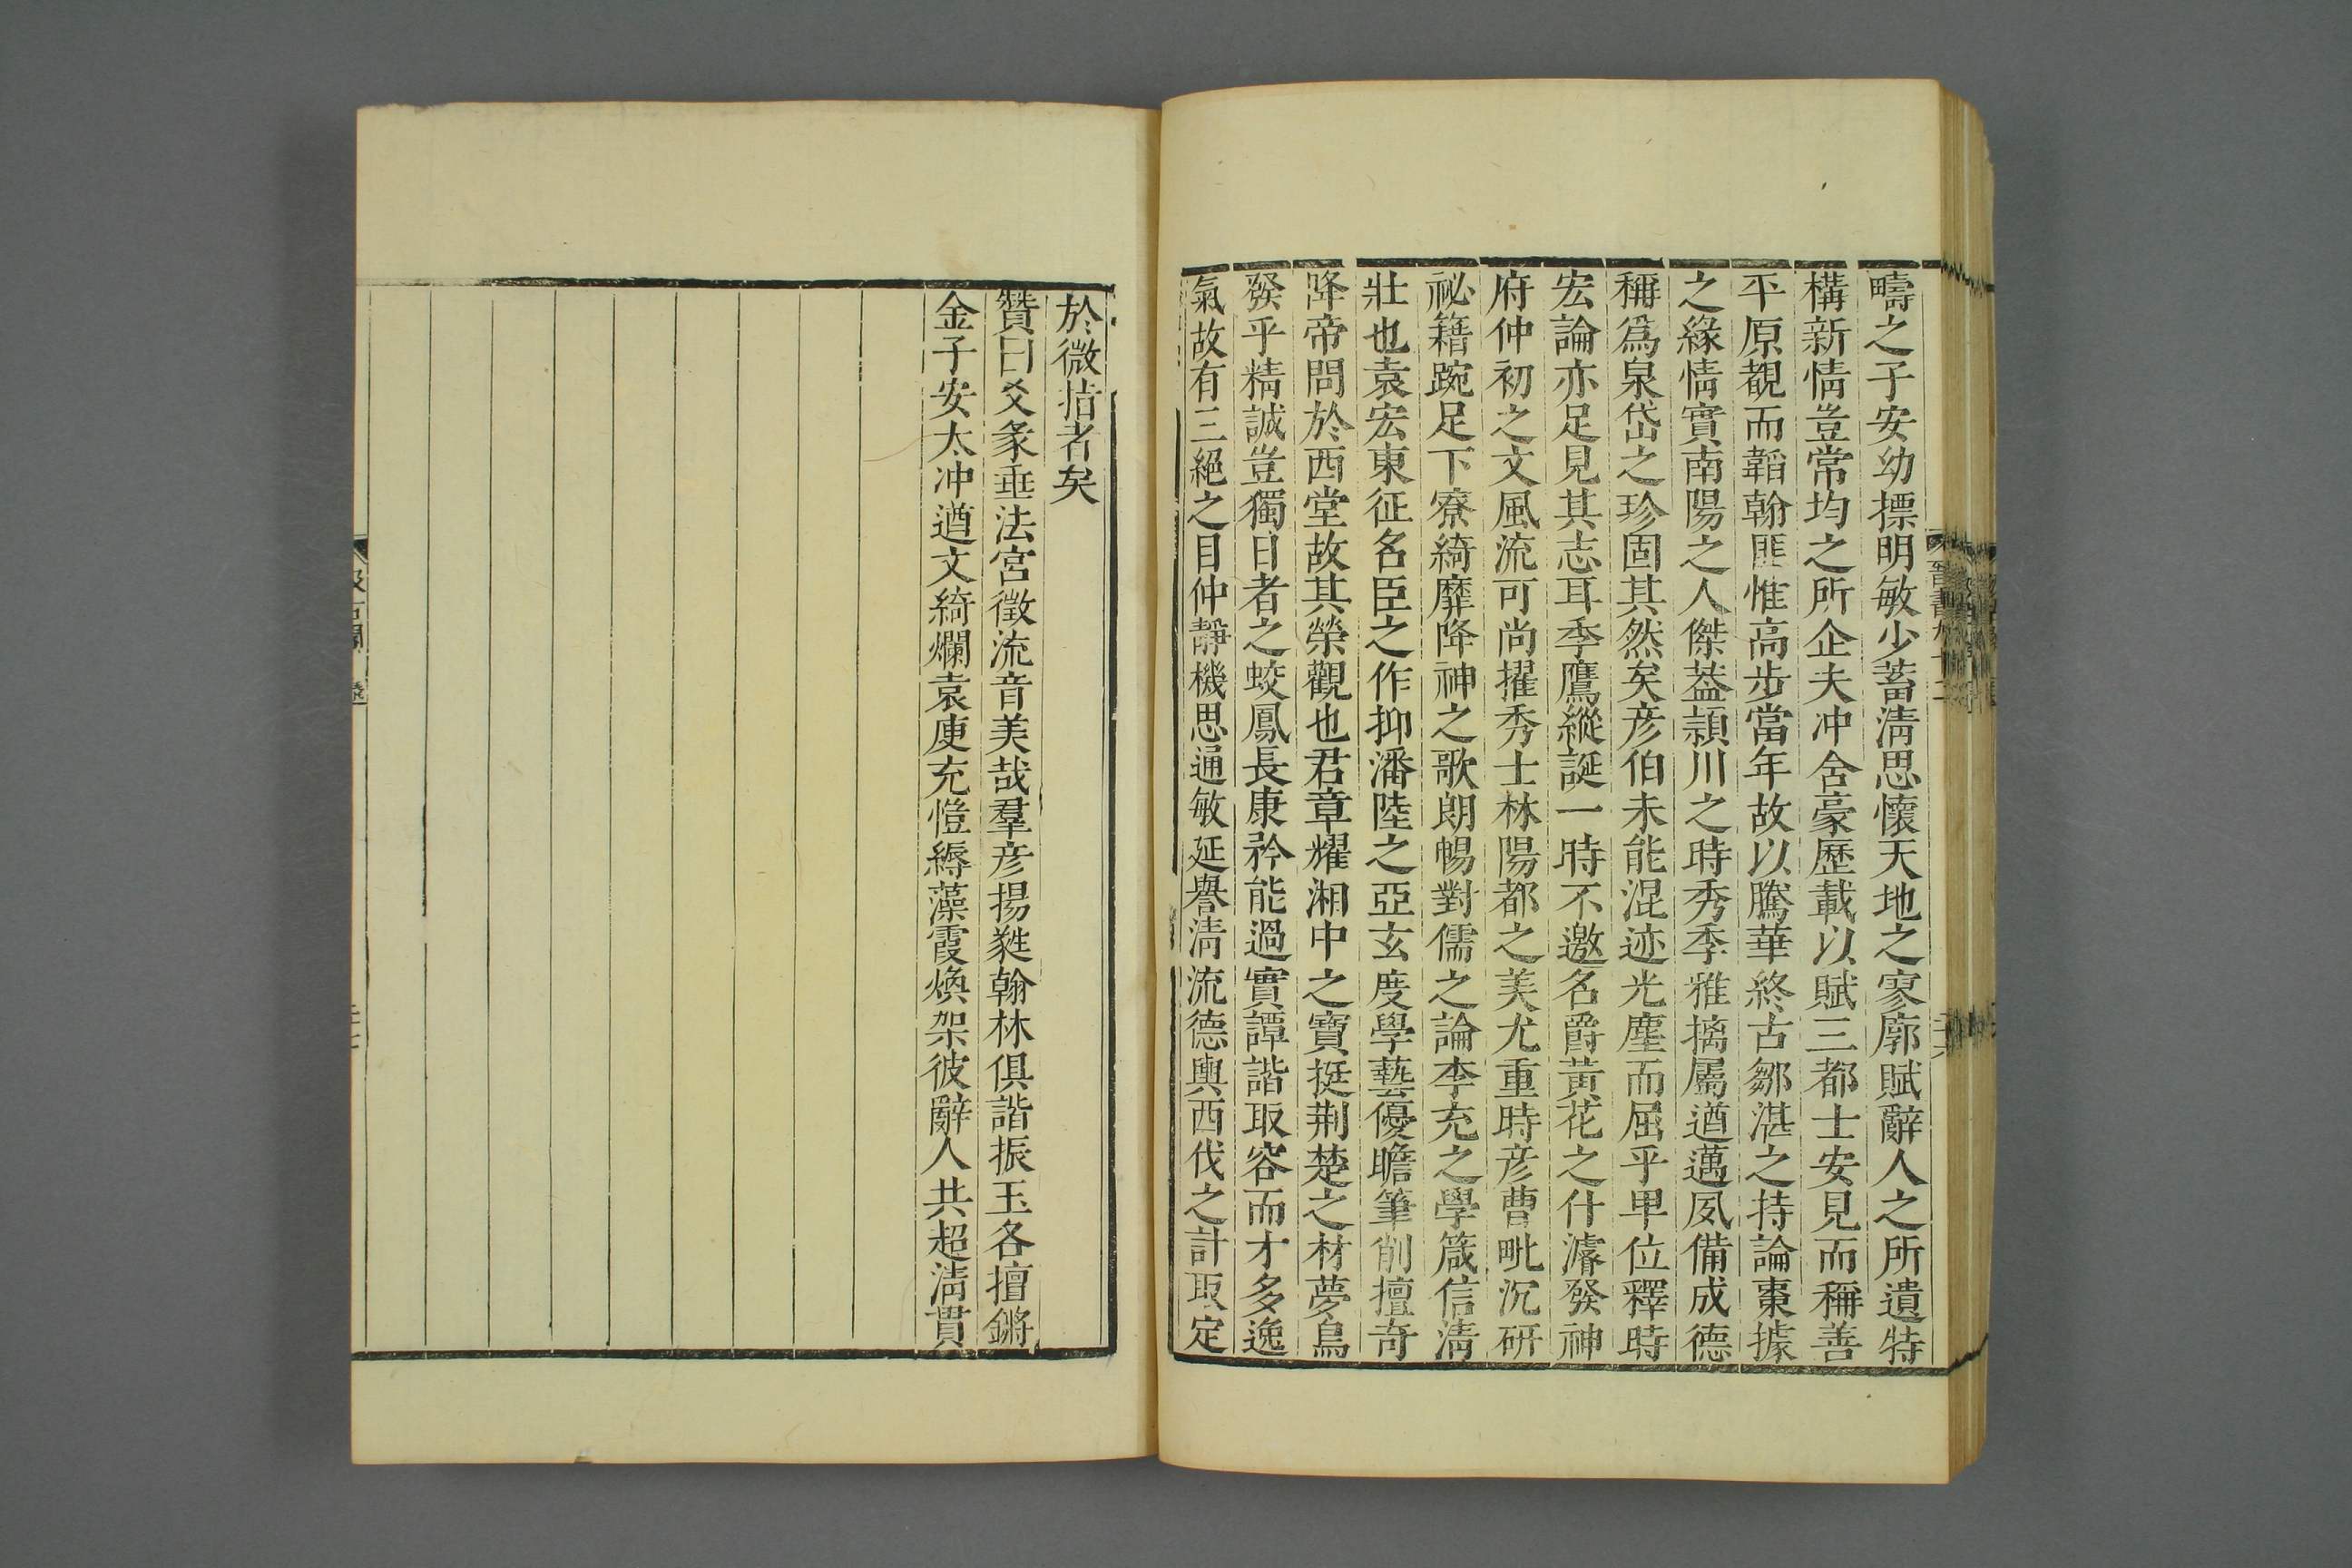 疇之子安幼摽明敏少蓄清思懷天地之寥廓賦辭人之所遺特
構新情豈常均之所企夫冲含豪歷載以賦三都士安見而稱善
平原覩而韜翰匪惟高步當年故以騰華終古鄒湛之持論棗據
之緣情實南陽之人傑葢頴川之時秀季雅摛屬遒邁夙備成德
稱爲泉岱之珍固其然矣彦伯未能混迹光塵而屈乎卑位釋時
宏論亦足見其志耳季鷹縱誕一時不邀名爵黃花之什濬發神
府仲初之文風流可尚擢秀士林陽都之美尤重時彦曹毗沉研
祕籍踠足下寮綺靡降神之歌朗暢對儒之論李充之學箴信清
壯也袁宏東征名臣之作抑潘陸之亞玄度學藝優瞻筆削擅奇
降帝問於西堂故其榮觀也君章耀湘中之寶挺荆楚之材夢鳥
發乎精誠豈獨日者之蛟鳳長康矜能過實譚諧取容而才多逸
氣故有三絕之目仲靜機思通敏延譽清流德輿西伐之計取定
晉書九十二
於微㧞者矣
贊曰爻彖垂法宮徵流音美哉羣彦揚蕤翰林俱諧振玉各擅鏘
金子安太冲遒文綺爛袁庾充愷縟藻霞煥架彼辭人共超清貫